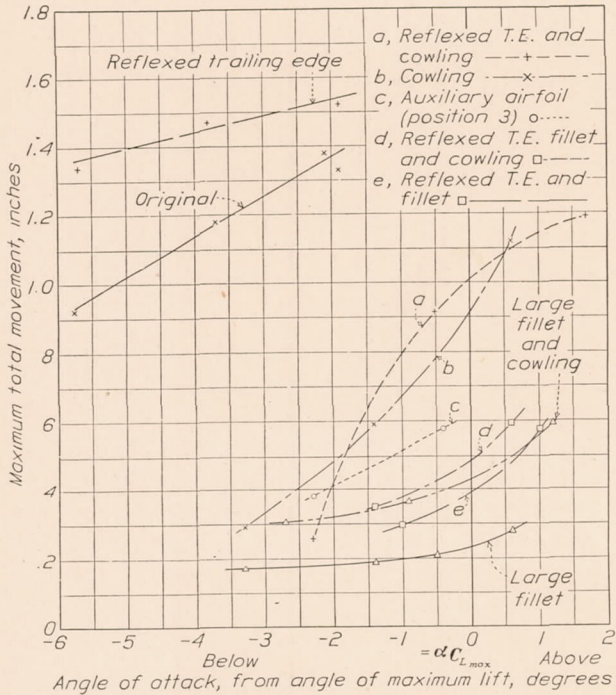 1.8
1.6
1.4
1.2
1.0
.8
.6
.4
.2
0
Maximum total movement, inches
Reflexed trailing edge
Original
a, Reflexed T.E. and
cowling
b, Cowling
c, Auxiliary airfoil
(position 3)
d, Reflexed T.E. fillet
and cowling
e, Reflexed T.E. and
fillet
Large
fillet
and
cowling
a
b
c
d
e
Large
fillet
-6 -5 -4 -3 -2 -1 0 1 2
Below = αC_Lmax Above
Angle of attack, from angle of maximum lift, degrees